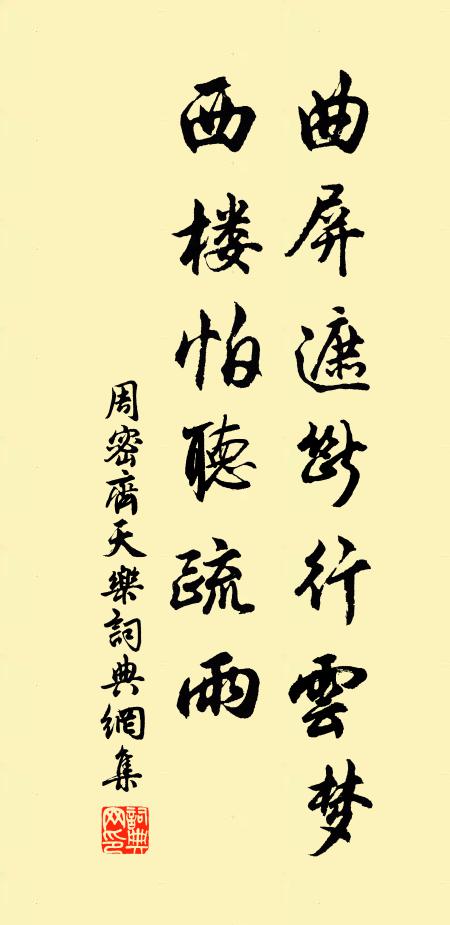 曲屏遮断行雲梦
西楼怕聽疏雨
周密齊天樂詞典網集
詞典網印